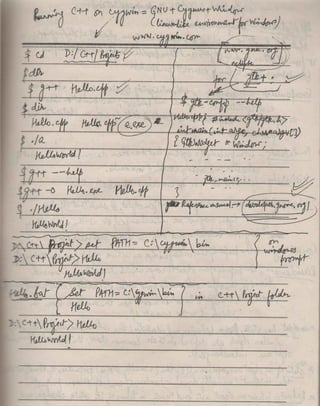 Running C++ on cygwin = GNU + Cygnus + Window
(linux like environment for Window)
www.cygwin.com
$ cd D:/C++/Projects
$ dir
$ g++ Hello.cpp
$ dir
Hello.cpp Hello.cpp a.exe
$ ./a
HelloWorld!
$ g++ --help
$ g++ -o Hello.exe Hello.cpp
$ ./Hello
HelloWorld!
www.gnu.org
for gtk+
$ gtk-config --help
Hello.cpp
int main(int argc, char *argv[])
{ GtkWidget * Window;
}
Reference manual → developer.gnome.org/
D:\C++\Project> set PATH = C:\cygwin\bin
D:\C++\Project> Hello
HelloWorld!
on windows prompt
Hello.bat { Set PATH = C:\cygwin\bin
Hello
in C++\Project folder
D:\C++\Project> Hello
HelloWorld!